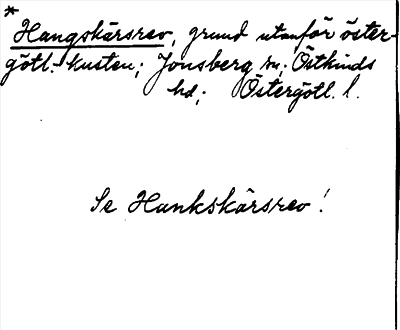 *
Hangskärsrev, grund utanför öster-
götl. kusten; Jonsberg sn; Östkinds
hd; Östergötl. l.
Se Hankskärsrev!